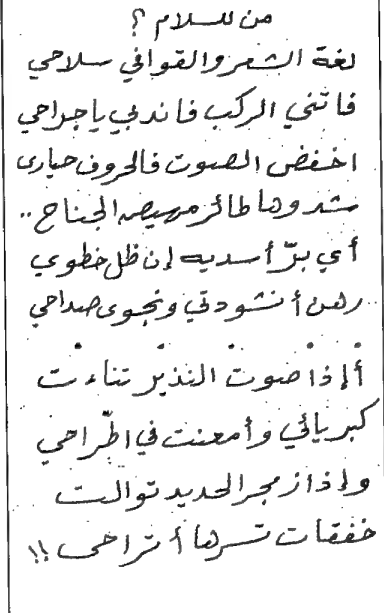 من للسلام ؟
لغة الشعر والقوافي سلاحي
فاتني الركب فاندبي يا جراحي
اخفض الصوت فالحروف حيارى
شدوها طائر مهيض الجناح ..
أي برّ أسديه إن ظل خطوي
رهن أنشودتي ونجوى صداحي
أإذا صوت النذير تناءت
كبريائي وأمعنت في اطّراحي
وإذا زمجر الحديد توالت
خفقات تسرها أتراحي !!